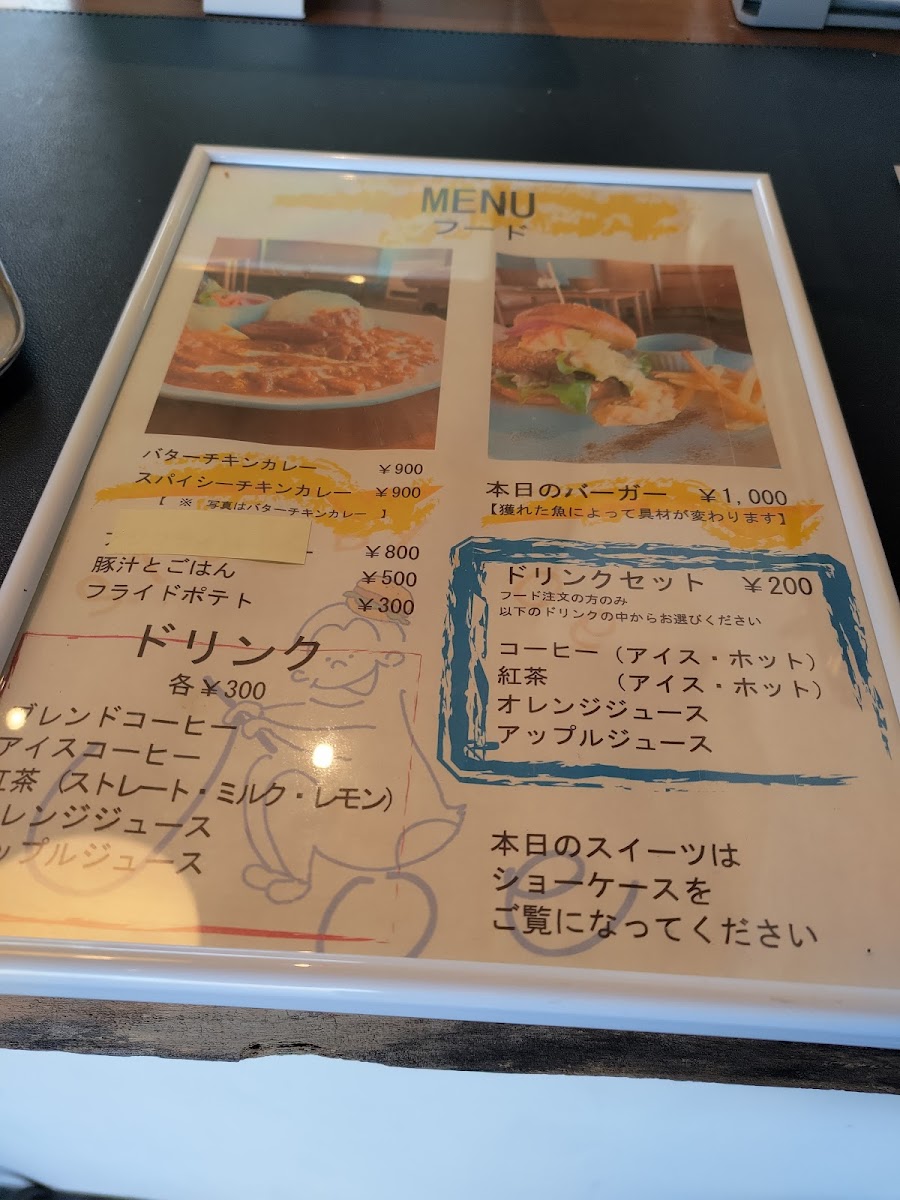 MENU
フード
バターチキンカレー ￥900
スパイシーチキンカレー ￥900
【 ※ 写真はバターチキンカレー 】
￥800
豚汁とごはん ￥500
フライドポテト ￥300
ドリンク
各￥300
ブレンドコーヒー
アイスコーヒー
紅茶（ストレート・ミルク・レモン）
レンジジュース
ップルジュース
本日のバーガー ￥1,000
【獲れた魚によって具材が変わります】
ドリンクセット ￥200
フード注文の方のみ
以下のドリンクの中からお選びください
コーヒー（アイス・ホット）
紅茶 （アイス・ホット）
オレンジジュース
アップルジュース
本日のスイーツは
ショーケースを
ご覧になってください